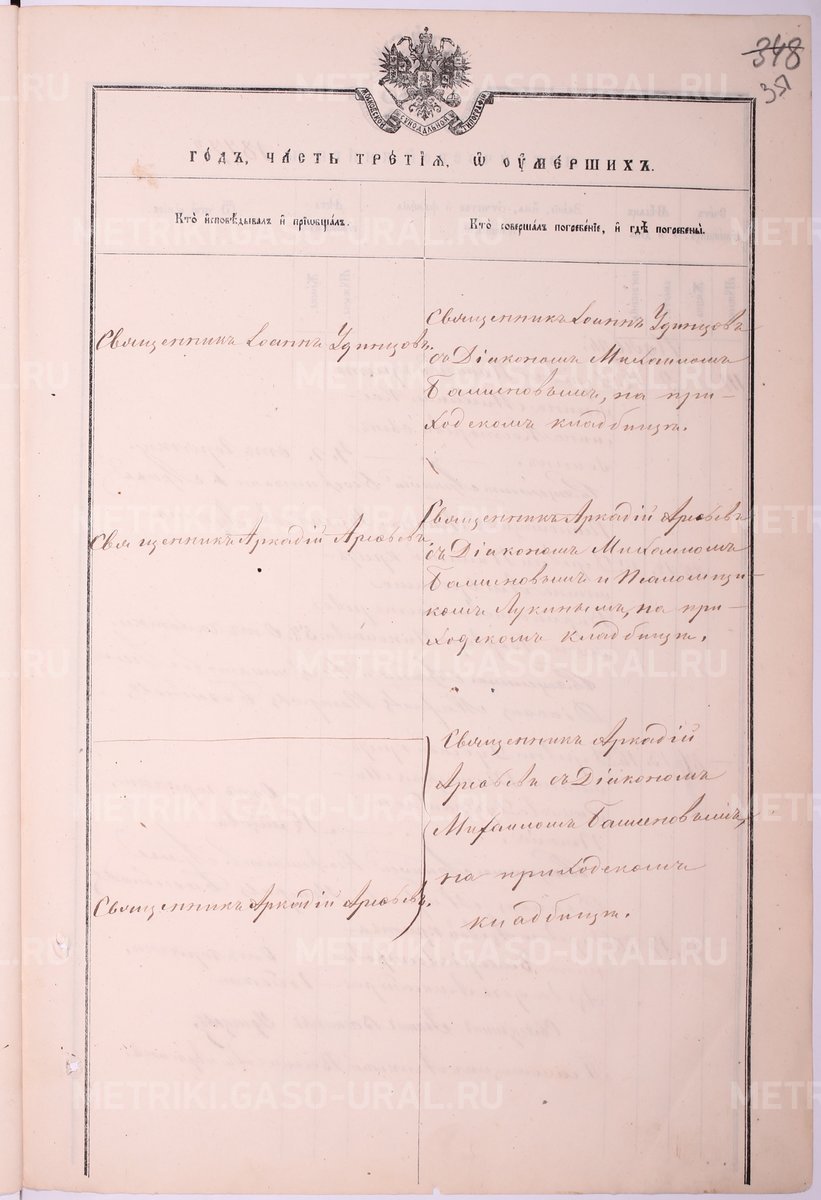 348
351
МОСКОВСКОЙ СѴНОДАЛЬНОЙ ТИПОГРАФІИ
ГОДЪ, ЧАСТЬ ТРЕТІЯ, Ѿ ОУМЕРШИХЪ.
Кто исповѣдывалъ и пріобщалъ.
Кто совершалъ погребеніе, и гдѣ погребены.
Священникъ Іоаннъ Удинцовъ.
Священникъ Іоаннъ Удинцовъ
съ Діакономъ Михаиломъ
на при-
ходскомъ кладбищѣ.
Священникъ Аркадій
Священникъ Аркадій
съ Діакономъ Михаиломъ
и Псаломщи-
комъ Лукинымъ, на при-
ходскомъ кладбищѣ.
Священникъ Аркадій
Священникъ Аркадій
съ Діакономъ
Михаиломъ
на приходскомъ
кладбищѣ.
METRIKI.GASO-URAL.RU